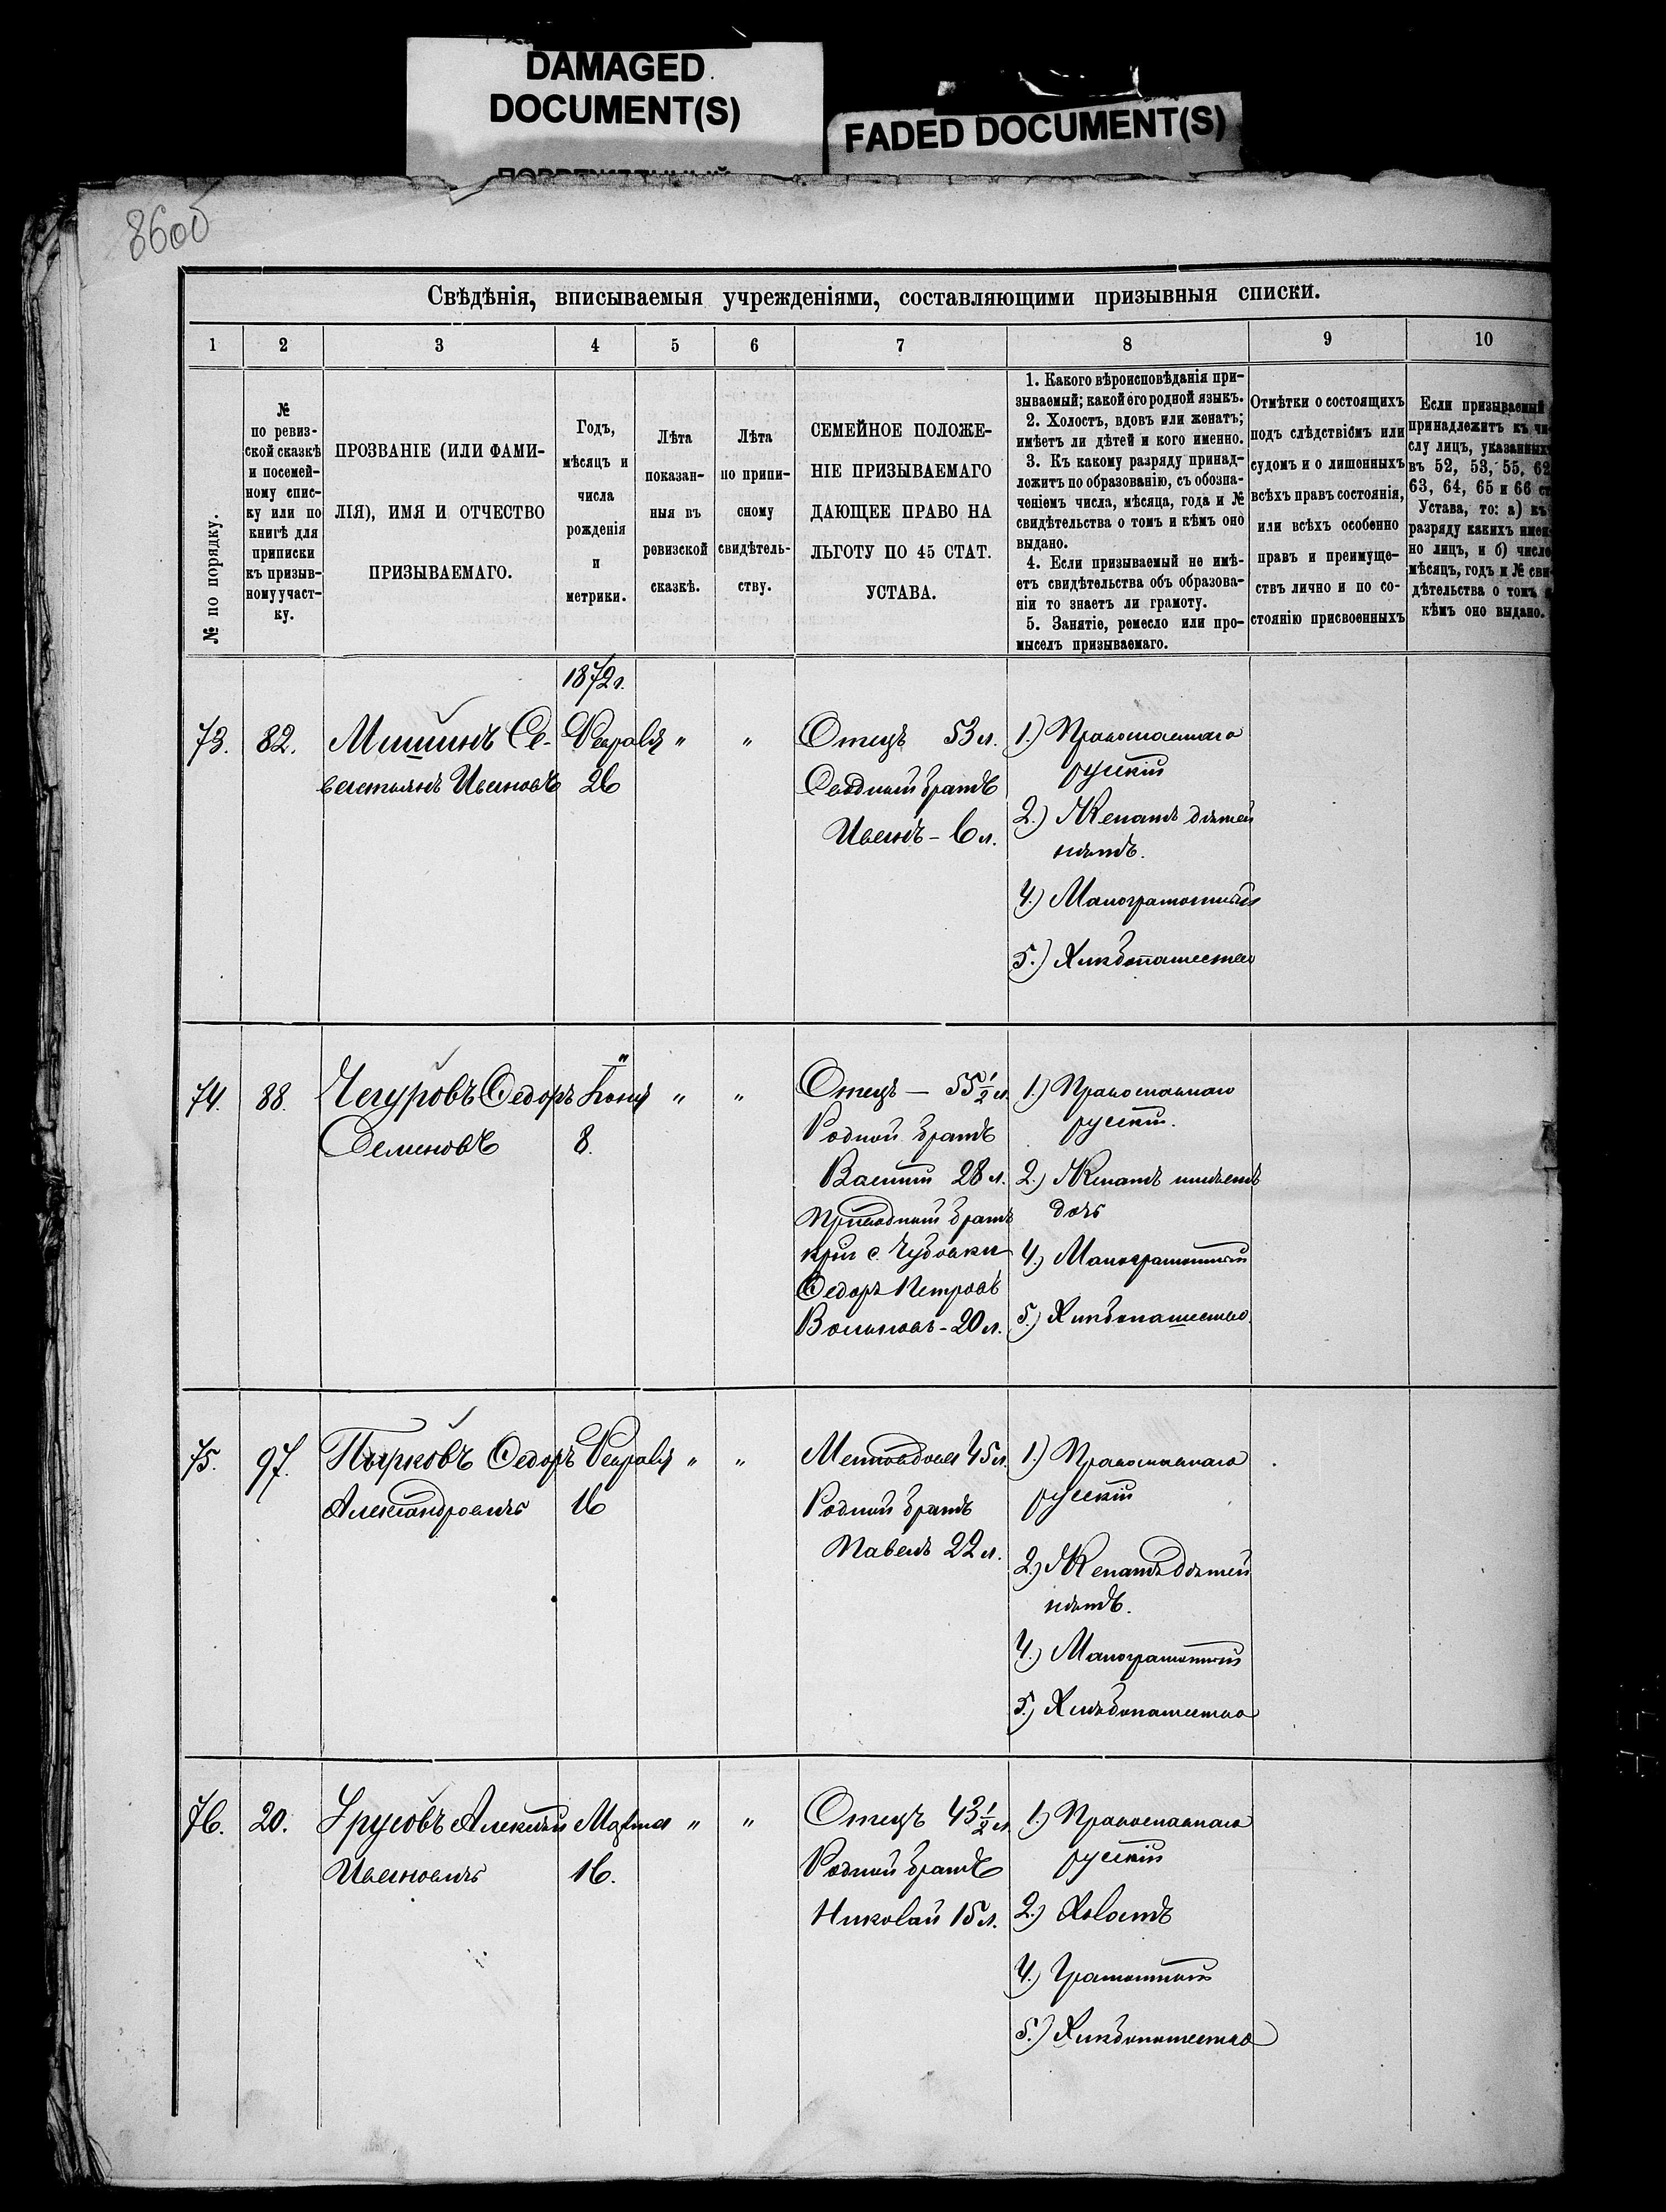 DAMAGED
DOCUMENT(S)
FADED DOCUMENT(S)
86об
Свѣдѣнія, вписываемыя учрежденіями, составляющими призывныя списки.
1 2 3 4 5 6 7 8 9 10
№ по порядку.
№
по ревиз-
ской сказкѣ
и посемей-
ному спис-
ку или по
книгѣ для
приписки
къ призыв-
ному участ-
ку.
ПРОЗВАНІЕ (ИЛИ ФАМИ-
ЛІЯ), ИМЯ И ОТЧЕСТВО
ПРИЗЫВАЕМАГО.
Годъ,
мѣсяцъ и
числа
рожденія
и
метрики.
Лѣта
показан-
ныя въ
ревизской
сказкѣ.
Лѣта
по припи-
сному
свидѣтель-
ству.
СЕМЕЙНОЕ ПОЛОЖЕ-
НІЕ ПРИЗЫВАЕМАГО
ДАЮЩЕЕ ПРАВО НА
ЛЬГОТУ ПО 45 СТАТ.
УСТАВА.
1. Какого вѣроисповѣданія при-
зываемый; какой его родной языкъ.
2. Холостъ, вдовъ или женатъ;
имѣетъ ли дѣтей и кого именно.
3. Къ какому разряду принад-
лежитъ по образованію, съ обозна-
ченіемъ числа, мѣсяца, года и №
свидѣтельства о томъ и кѣмъ оно
выдано.
4. Если призываемый не имѣ-
етъ свидѣтельства объ образова-
ніи то знаетъ ли грамоту.
5. Занятіе, ремесло или про-
мыселъ призываемаго.
Отмѣтки о состоящихъ
подъ слѣдствіемъ или
судомъ и о лишенныхъ
всѣхъ правъ состоянія,
или всѣхъ особенно
правъ и преимуще-
ствъ лично и по со-
стоянію присвоенныхъ
Если призываемый
принадлежитъ къ чи-
слу лицъ, указанныхъ
въ 52, 53, 55, 62
63, 64, 65 и 66 ст
Устава, то: а) къ
разряду какихъ имен-
но лицъ, и б) число
мѣсяцъ, годъ и № сви-
дѣтельства о томъ и
кѣмъ оно выдано.
1872 г.
73. 82. Мишинъ Се-
вастьянъ Ивановъ
Февраля
26
" "
Отецъ 53 л.
Сводный братъ
Иванъ - 6 л.
1.) Православнаго
русскій
2.) Женатъ дѣтей
нѣтъ.
4.) Малограмотный
5.) Хлѣбопашество
74. 88. Чегуровъ Ѳедоръ
Семеновъ
"
Іюня
8.
" "
Отецъ — 55 1/2 л.
Родной братъ
Василій 28 л.
Приводный братъ
кр-нъ с. Чубовки
Ѳедоръ Петровъ
20 л.
1.) Православнаго
русскій.
2.) Женатъ имѣетъ
дочь
4.) Малограмотный
5.) Хлѣбопашество.
75. 97. Пырковъ Ѳедоръ
Александровичъ
Февраля
16
" "
Мать вдова 45 л.
Родной братъ
Павелъ 22 л.
1.) Православнаго
русскій
2.) Женатъ дѣтей
нѣтъ.
4.) Малограмотный
5.) Хлѣбопашество
76. 20. Урусовъ Алексѣй
Ивановичъ
Марта
16.
" "
Отецъ 43 1/2 л.
Родной братъ
Николай 15 л.
1.) Православнаго
русскій
2.) Холостъ
4.) Грамотный
5.) Хлѣбопашество